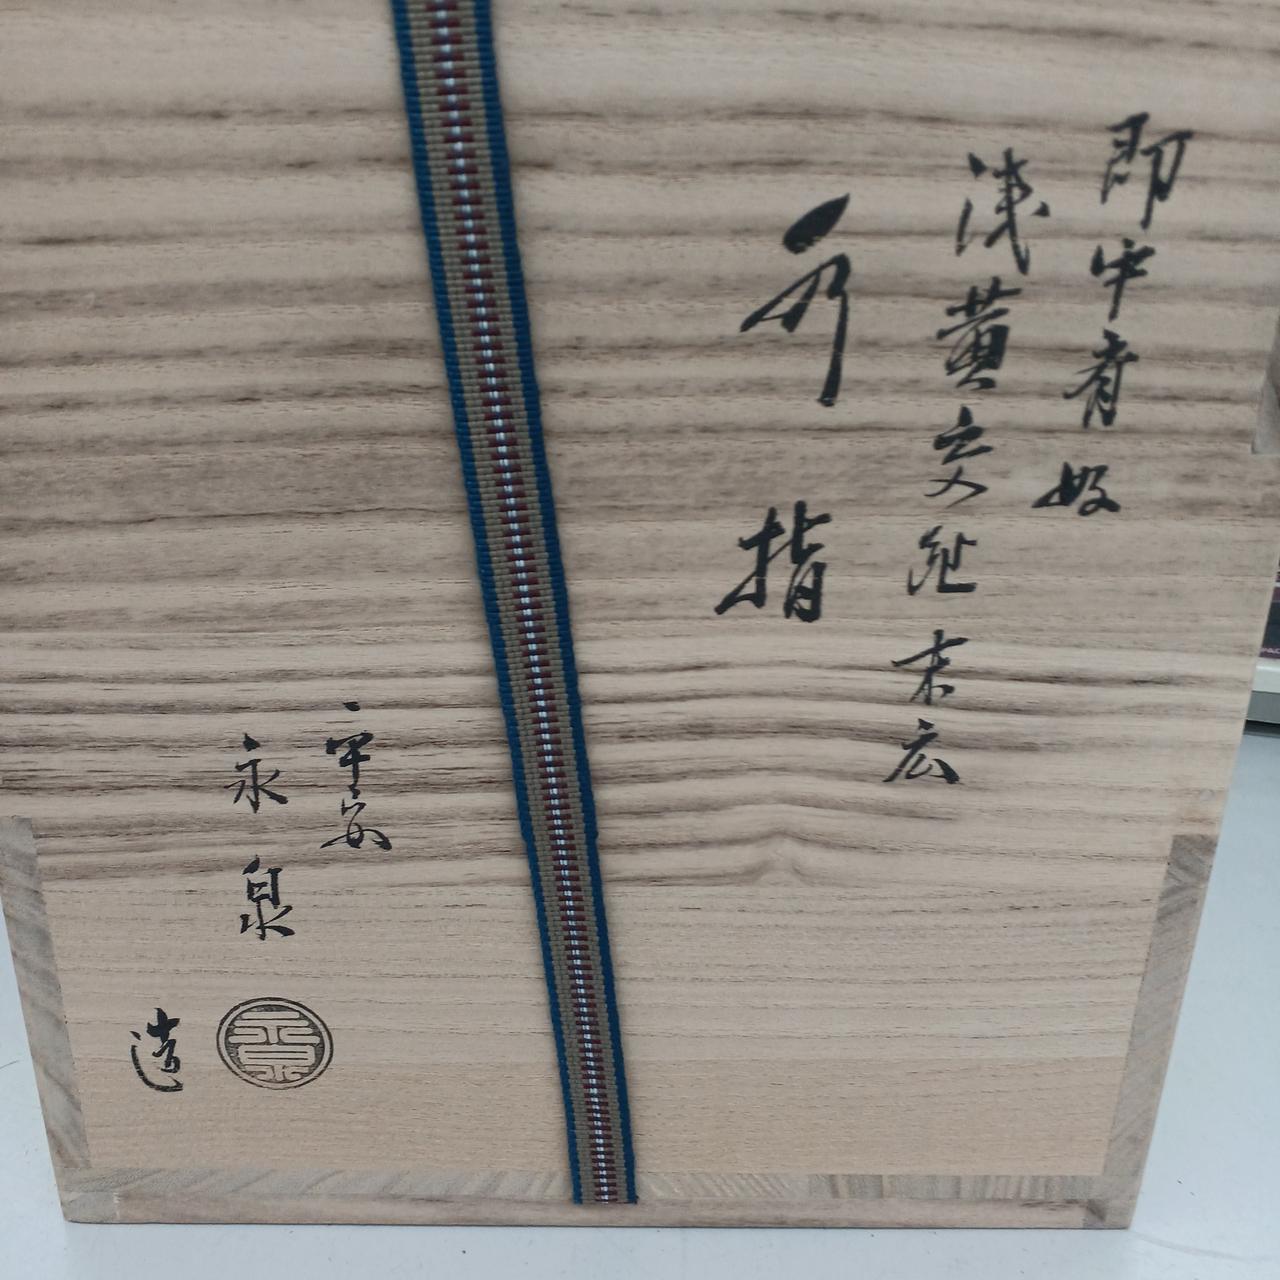 即中斎好
浅黄交趾末広
水指
平安
永泉
造